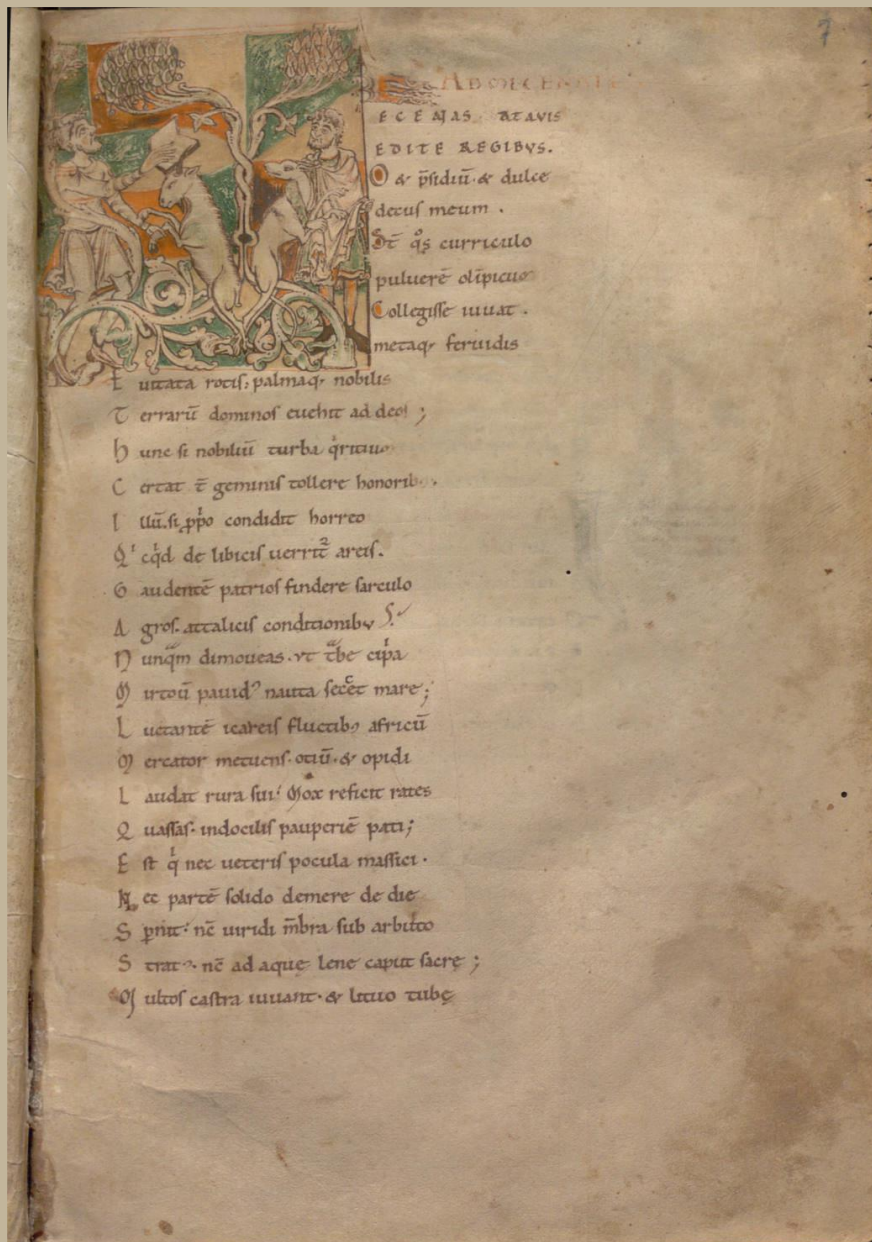 7
ECENAS ATAVIS
EDITE REGIBVS.
O & p̄sidiū· & dulce
decus meum .
St̄ q̊s curriculo
puluerē olīpicuꝰ
Collegisse iuuat .
metaq; feruidis
E uitata rotis; palmaq; nobilis
T errarū dominos euehit ad deos ;
h unc si nobiliū turba q̍ritiuꝰ
C ertat t̄ geminis tollere honorib; .
I llū. si ꝓp̍o condidit horreo
Q̍ cq̍d de libicis uerrit̄ areis.
G audentē patrios findere sarculo
A gros. attalicis conditionibus.
N unqᵃm dimoueas. vt tᵃbe cip̍a
M irtoū pauidꝰ nauta secet mare;
L uctantē icareis fluctib; africū
M ercator metuens. otiū. & opidi
L audat rura sui. Mox reficit rates
Q uassas. indocilis pauperiē pati;
E st q̍ nec ueteris pocula massici.
N ec partē solido demere de die
S pernit. nc̄ uiridi m̄bra sub arbuto
S tratꝰ. nc̄ ad aquę lene caput sacrę ;
M ultos castra iuuant. & lituo tubę